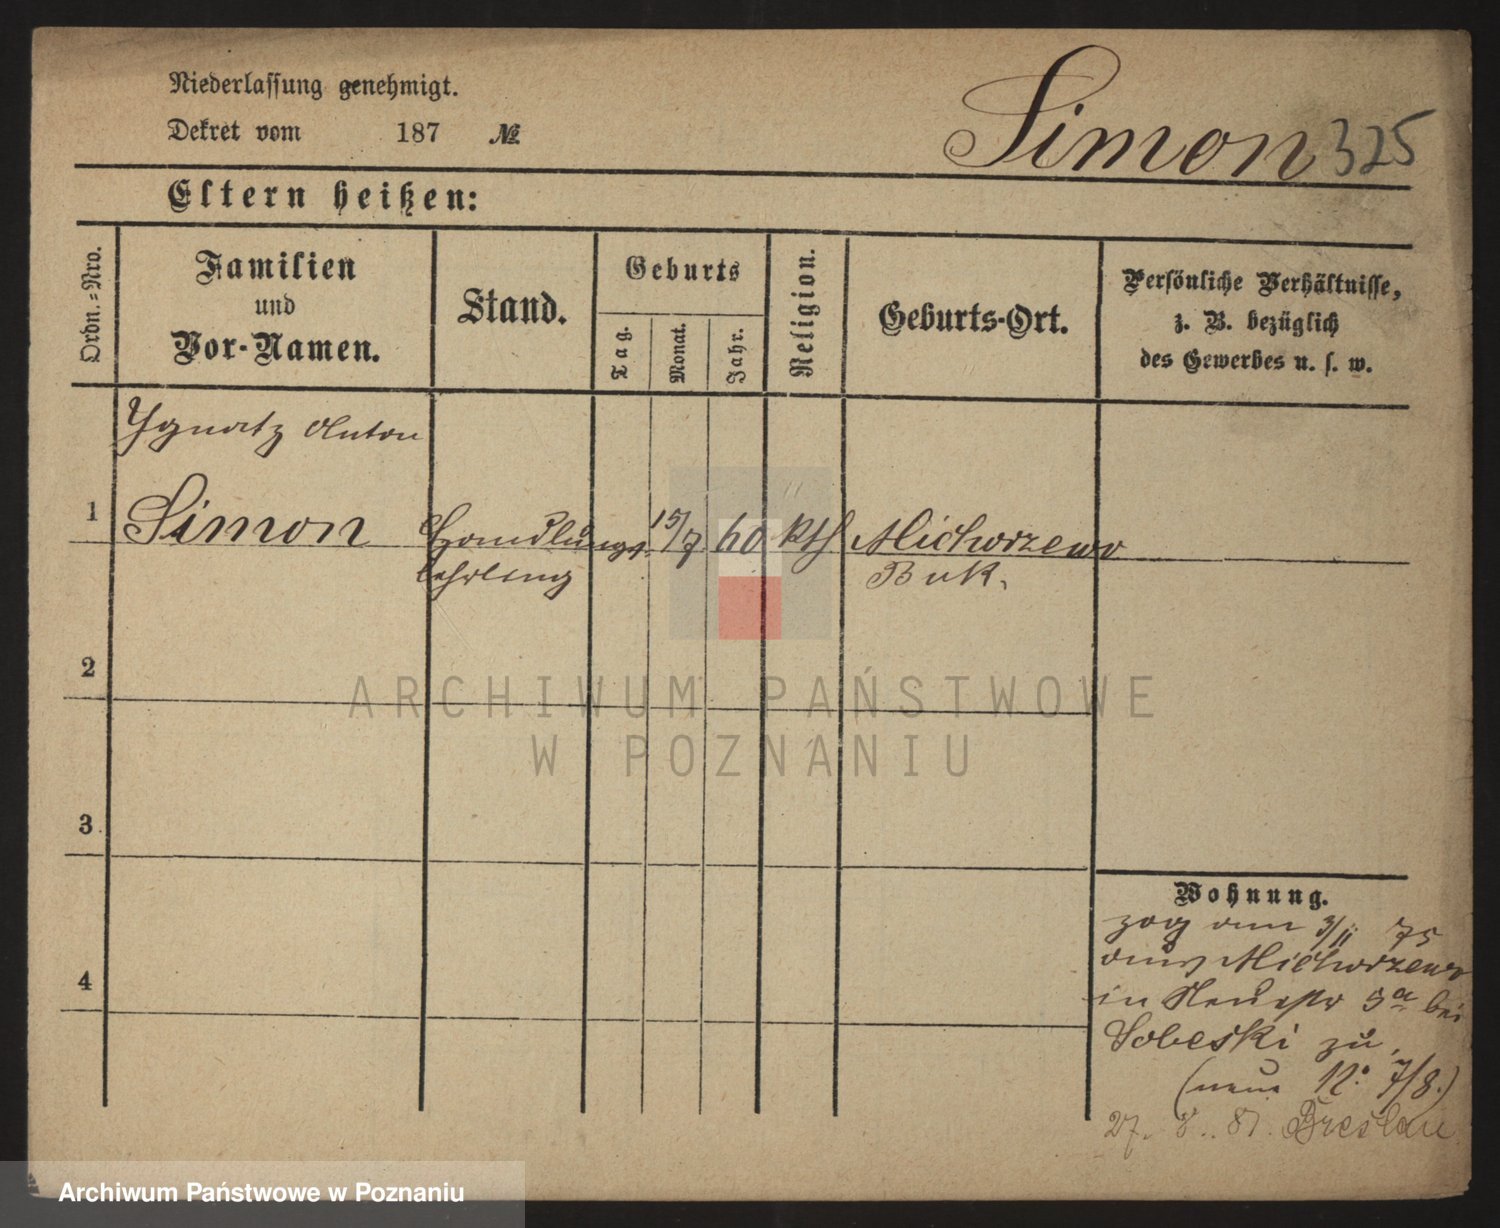 Niederlassung genehmigt.
Dekret vom 187 №
Simon 325
Eltern heißen:
Ordn.=Nro.
Familien
und
Vor-Namen.
Stand.
Geburts
Tag.
Monat.
Jahr.
Religion.
Geburts-Ort.
Persönliche Verhältnisse,
z. B. bezüglich
des Gewerbes u. s. w.
Ygnatz Anton
1 Simon Handlungs- 15/7 60 kth Michorzewo
lehrling Buk.
2
ARCHIWUM PAŃSTWOWE
W POZNANIU
3
4
Wohnung.
zog am 3/11 75
aus Michorzewo
in Neuestr 5a bei
Sobeski zu,
(neue 12. 7/8.)
27. 8. 81. Breslau
Archiwum Państwowe w Poznaniu